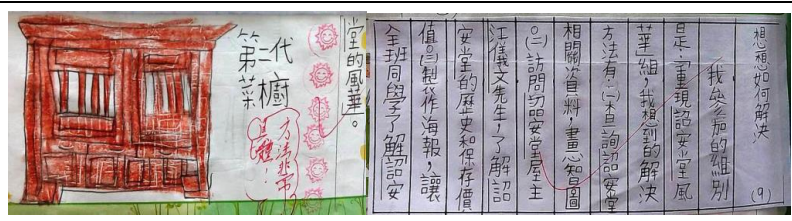 想想如何解決
(9)
我參加的組別
是:「重現詔安堂風
華」組,我想到的解決
方法有:(一)查詢詔安堂
相關資料,畫心智圖
。(二)訪問詔安堂屋主
江儀文先生,了解詔
安堂的歷史和保存價
值。(三)製作海報,讓
全班同學了解詔安
堂的風華。
第二代
菜櫥
方法非常
具體!